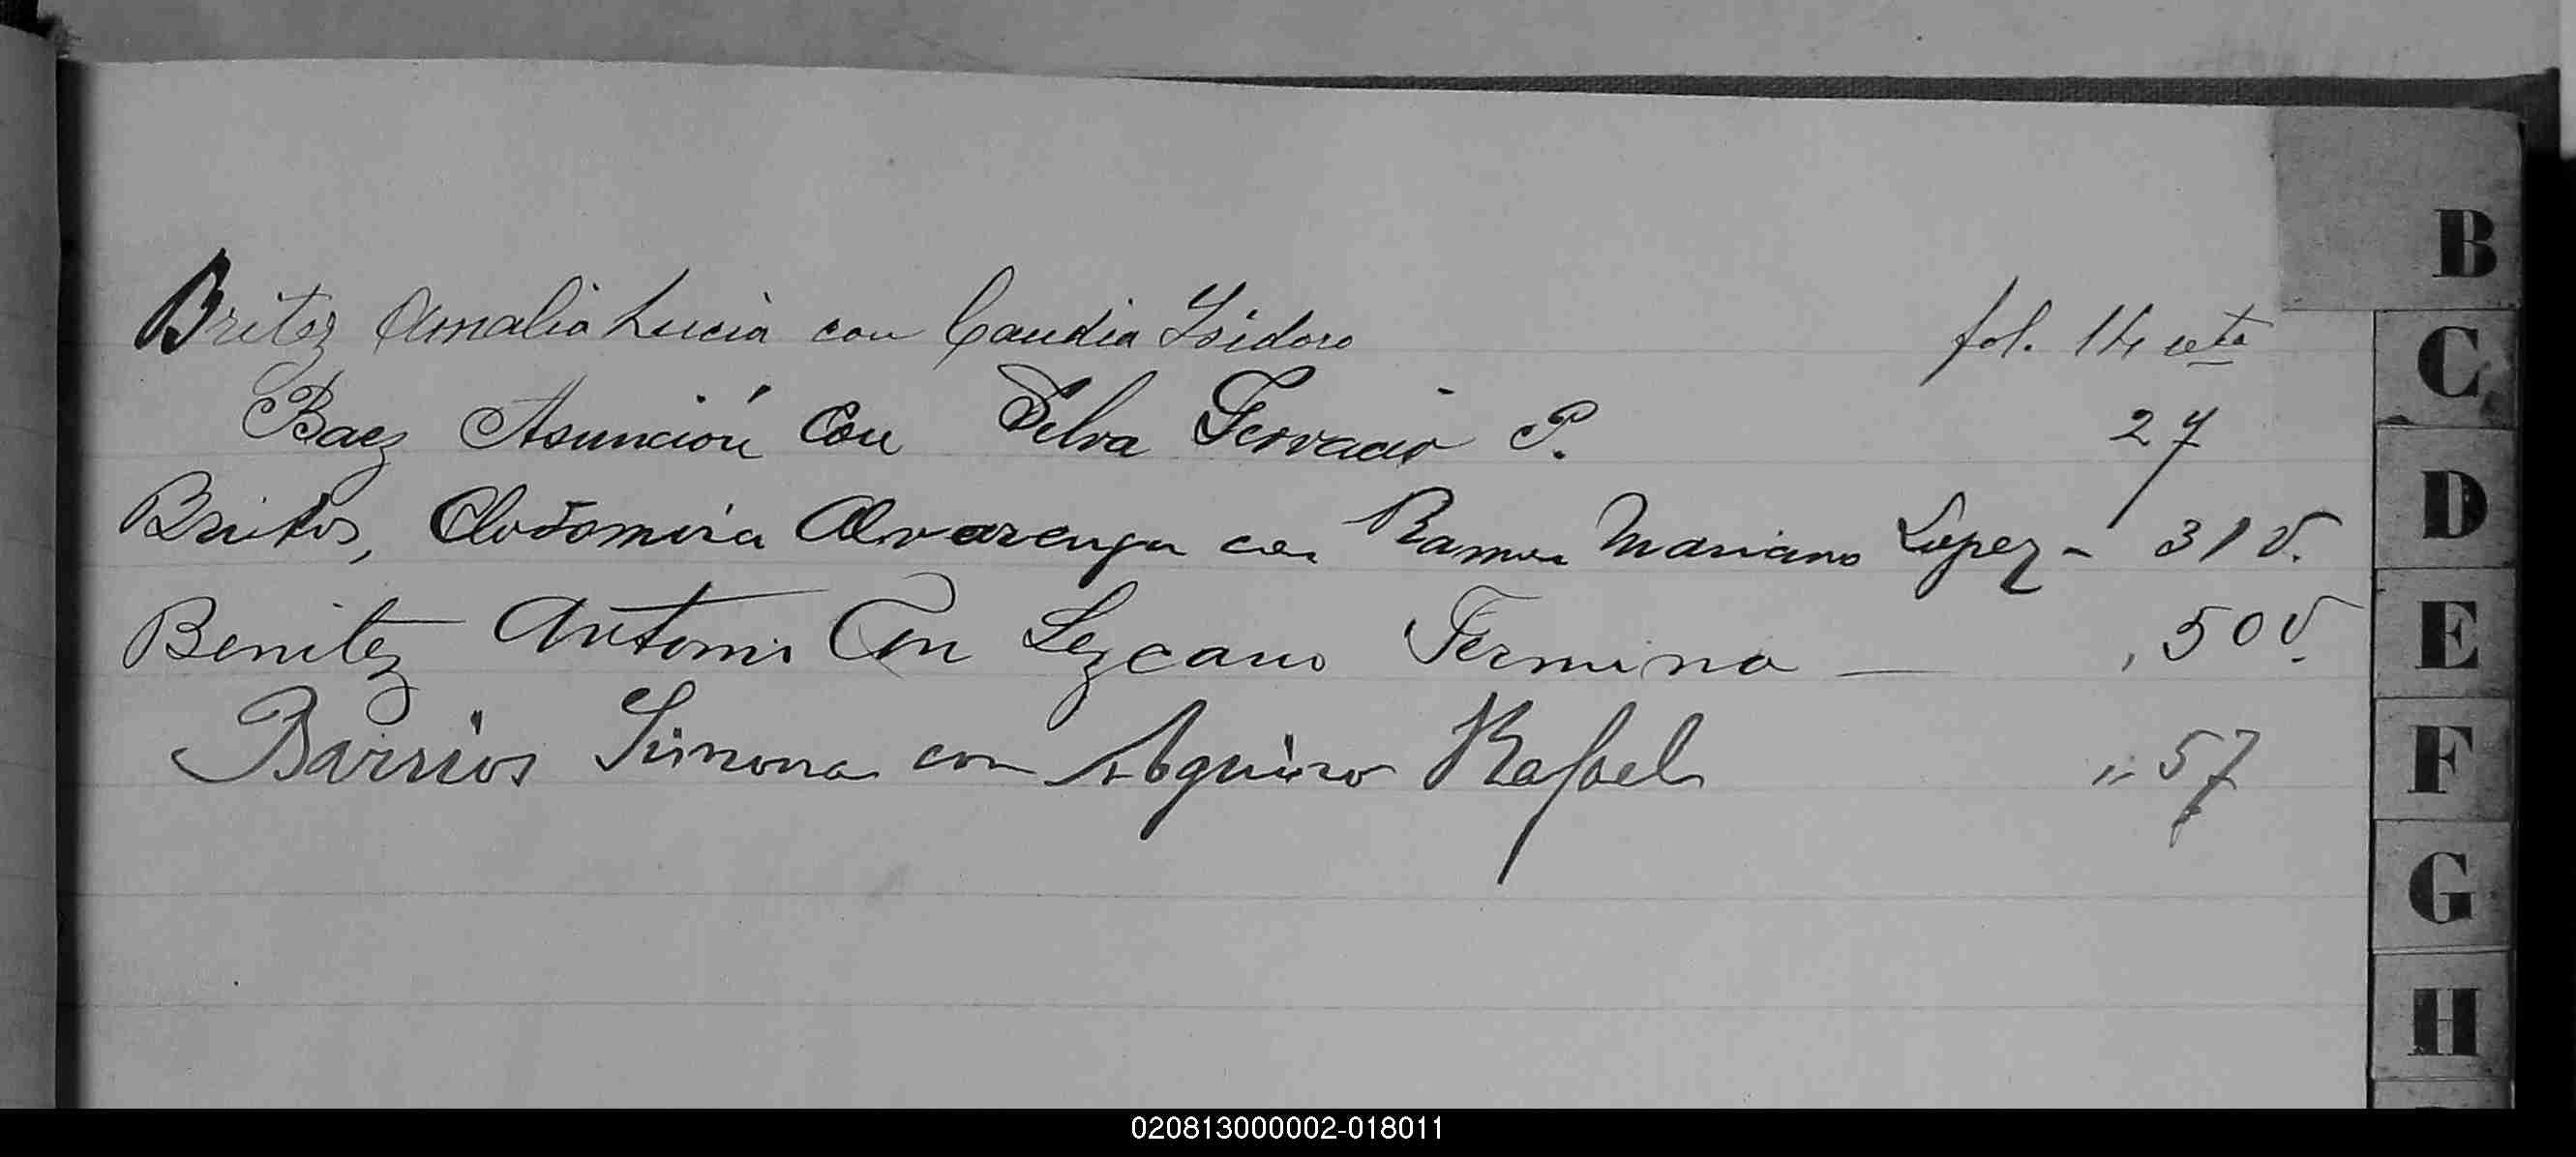 B
Britez Amalia Lucia con Candia Isidoro fol. 14 vta
C
Baez Asunción Con Selva Servacio P. 27
D
Britos, Clodomira Alvarenga con Ramon Mariano Lopez - 31 v.
E
Benitez Antonio Con Lezcano Fermina — , 50 v.
F
Barrios Simona con Aguino Rafael " 57
G
H
020813000002-018011